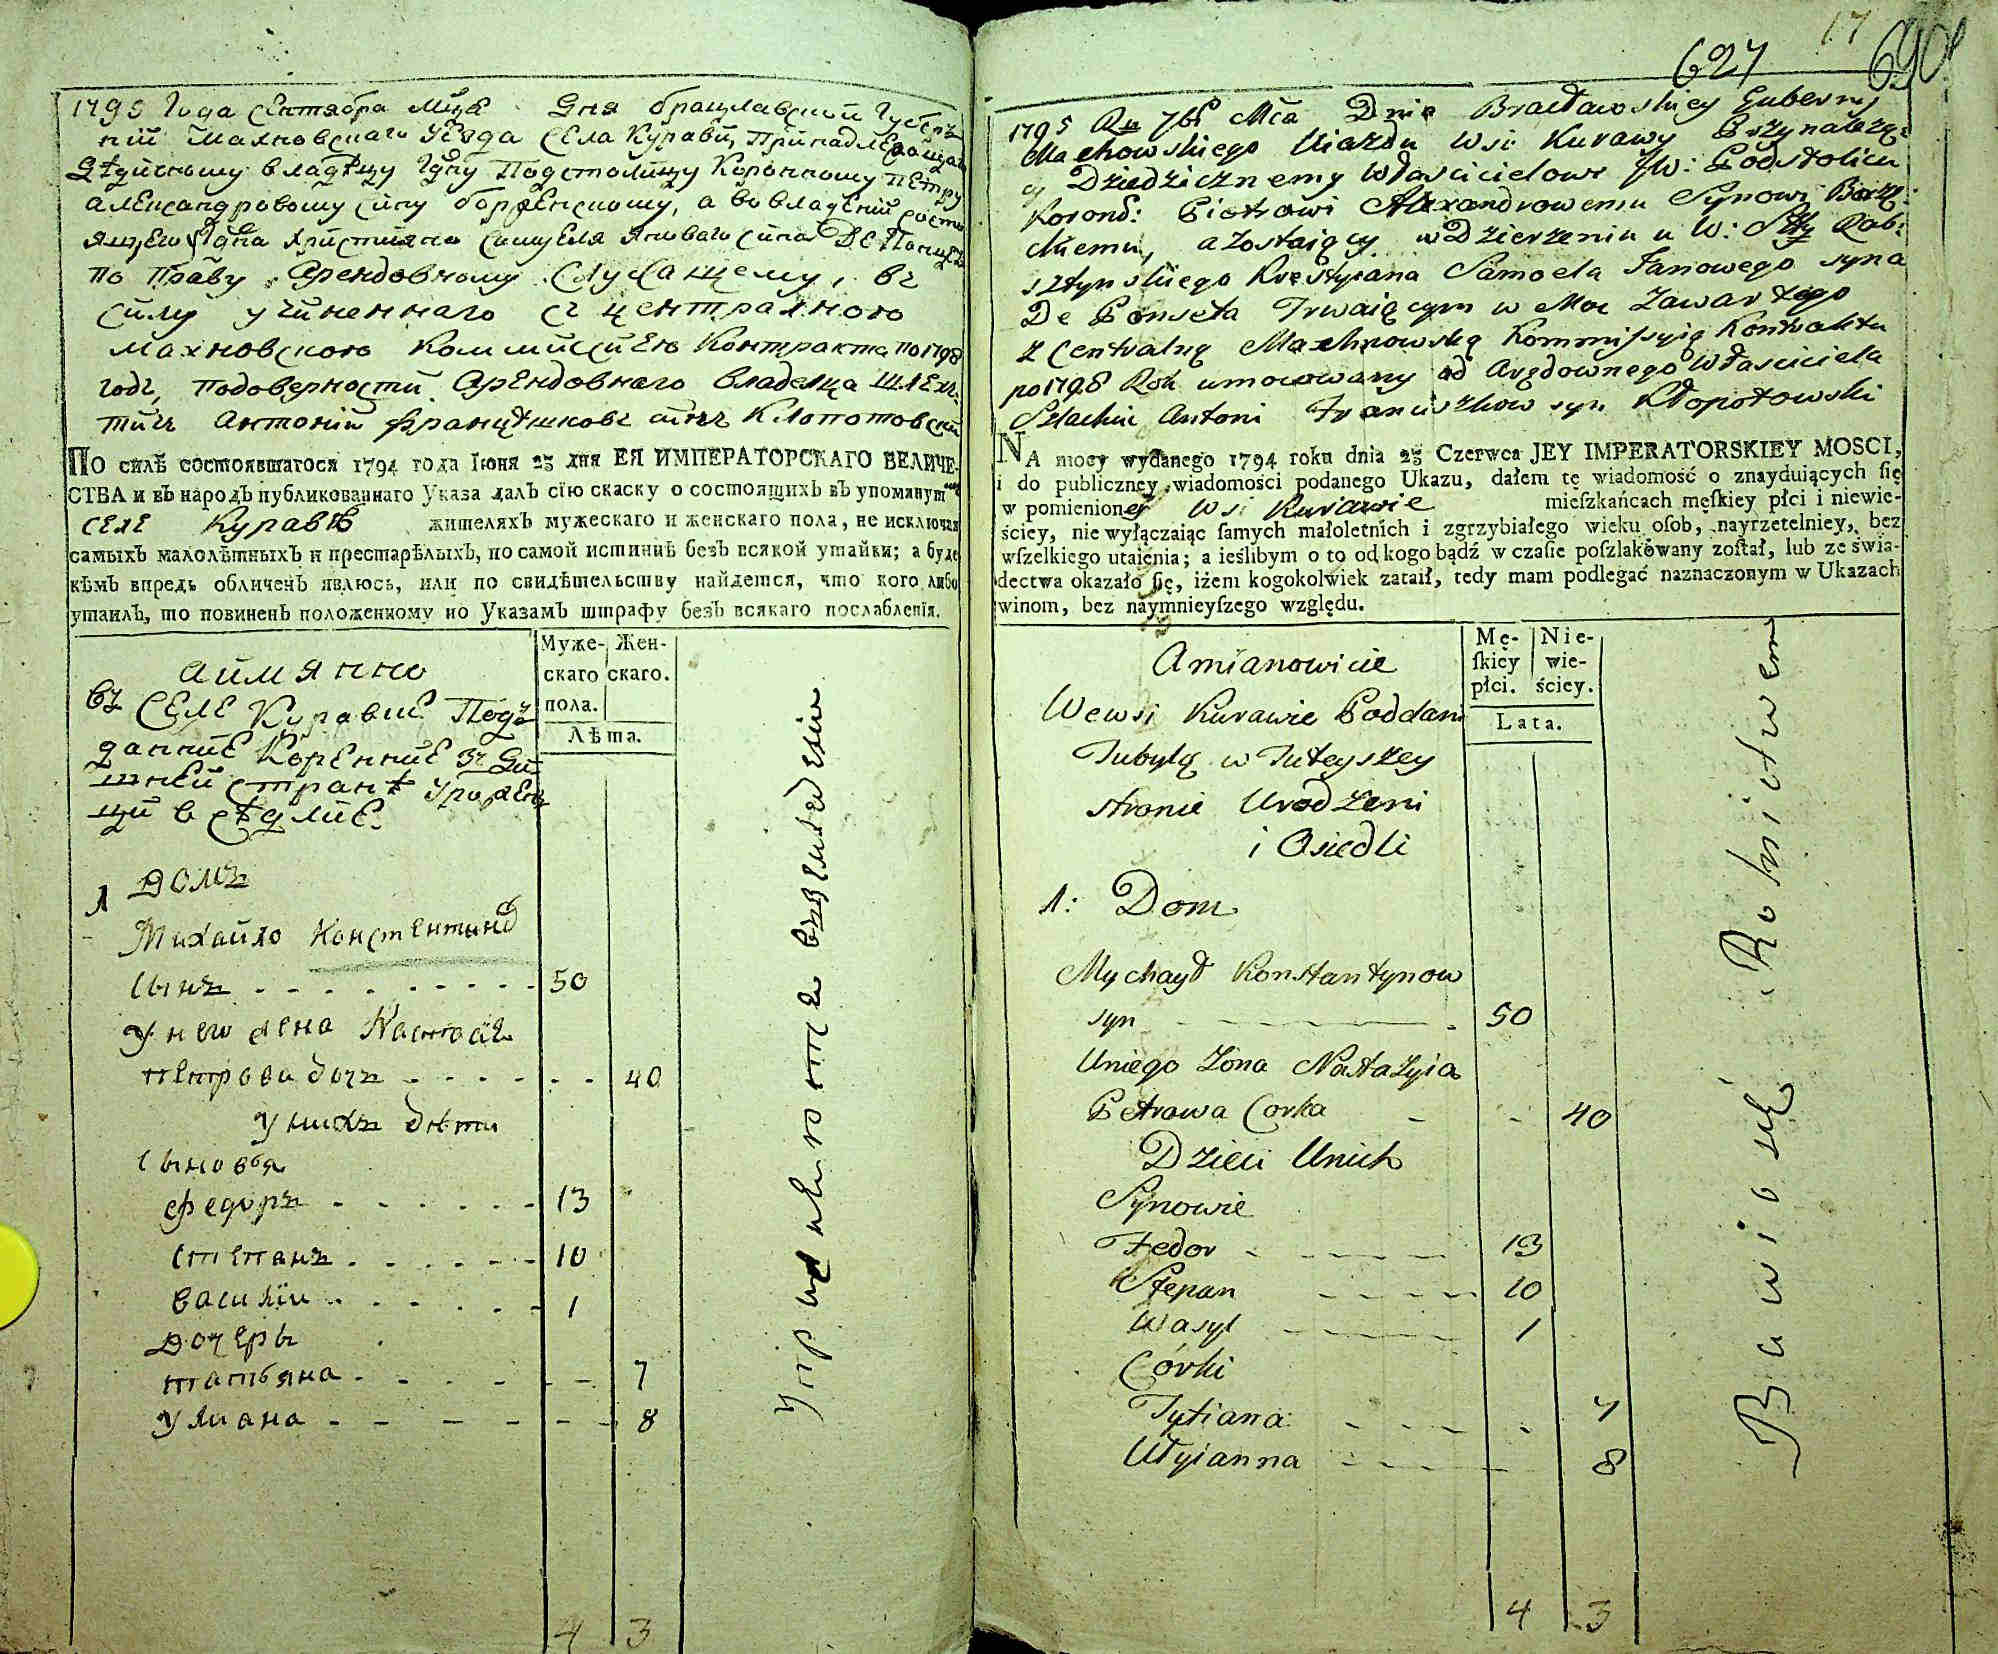 1795 Года сентября мца Дня брацлавской Губер
нии Махновскаго Уезда села Курави, принадлежащаго
дедичному владелцу Гдну Подстолицу Коронному Петру
александровому сину
по праву Арендовному служащему, в
силу учиненнаго с централною
махновскою коммисиею контракта по 1798
годъ, по доверности Арендовнаго владелца шлях
тичъ Антоний Францишковъ синъ Клопотовский
ПО силѣ состоявшагося 1794 года Іюня 23 дня ЕЯ ИМПЕРАТОРСКАГО ВЕЛИЧЕ-
СТВА и въ народъ публикованнаго Указа далъ сію скаску о состоящихъ въ упомянут
селе Куравѣ жителяхъ мужескаго и женскаго пола, не исключая
самыхъ малолѣтныхъ и престарѣлыхъ, по самой истиннѣ безъ всякой утайки; а буде
кѣмъ впредь обличенъ явлюсь, или по свидѣтельству найдется, что кого либо
утаилъ, то повиненъ положенному по Указамъ штрафу безъ всякаго послабленія.
Муже- Жен-
скаго скаго.
пола.
Лѣта.
аймянно
въ селе Куравие Подъ
данние Коренние въ зди
шней странѣ урожен
ци в седлие.
1 Домъ
Михайло Константинов
сынъ - - - - - - - - 50
У него жена Настасия
петрова дочъ - - - - - - 40
У нихъ дѣти
сыновья
федоръ - - - - - - 13
степанъ - - - - - - 10
василий - - - - - - 1
дочеры
татьяна - - - - - - 7
Улиана - - - - - - 8
4 3
упражняются въ земледелии
17
627 690
1795 Ru 7br Mca Dnia Bracławskiey Guberny
Machowskiego Uiazdu Wsi Kurawy Przynależą:
cy Dziedzicznemy Włascicielowi JW: Podstolicu
Koronn: Piotrowi Alexandrowemu Synowi
a zostaiący w Dzierzeniu u W:
Krestyiana Samoela Janowego syna
De Ponseta Trwaiącym w Moc Zawartego
z Centralną Machnowską Kommissyią Kontraktu
po 1798 Rok umocowany od Arędownego Właściciela
Szlachic Antoni Franciszkow syn Kłopotowski
NA mocy wydanego 1794 roku dnia 23 Czerwca JEY IMPERATORSKIEY MOSCI,
i do publiczney wiadomości podanego Ukazu, dałem tę wiadomość o znayduiących ſię
w pomienioney Wsi Kurawie mieſzkańcach męſkiey płci i niewie-
ściey, nie wyłączaiąc ſamych małoletnich i zgrzybiałego wieku oſob, nayrzetelniey, bez
wſzelkiego utaienia; a ieślibym o to od kogo bądź w czaſie poſzlakowany zoſtał, lub ze świa-
dectwa okazało ſię, iżem kogokolwiek zataił, tedy mam podlegać naznaczonym w Ukazach
winom, bez naymnieyſzego względu.
Mę- Nie-
ſkiey wie-
płci. ściey.
Lata.
Amianowicie
We wsi Kurawie Poddani
Tubylą w Tuteyszey
stronie Urodzeni
i Osiedli
1: Dom
Mychaył Konstantynow
syn - - - - 50
U niego Żona Nastazyia
Petrowa Corka - - 40
Dzieci U nich
Synowie
Fedor - - - - 13
Stepan - - - - 10
Wasyl - - - - 1
Córki
Tytiana - - - 7
Ułyianna - - - - 8
4 3
Bawią się Rolnictwem